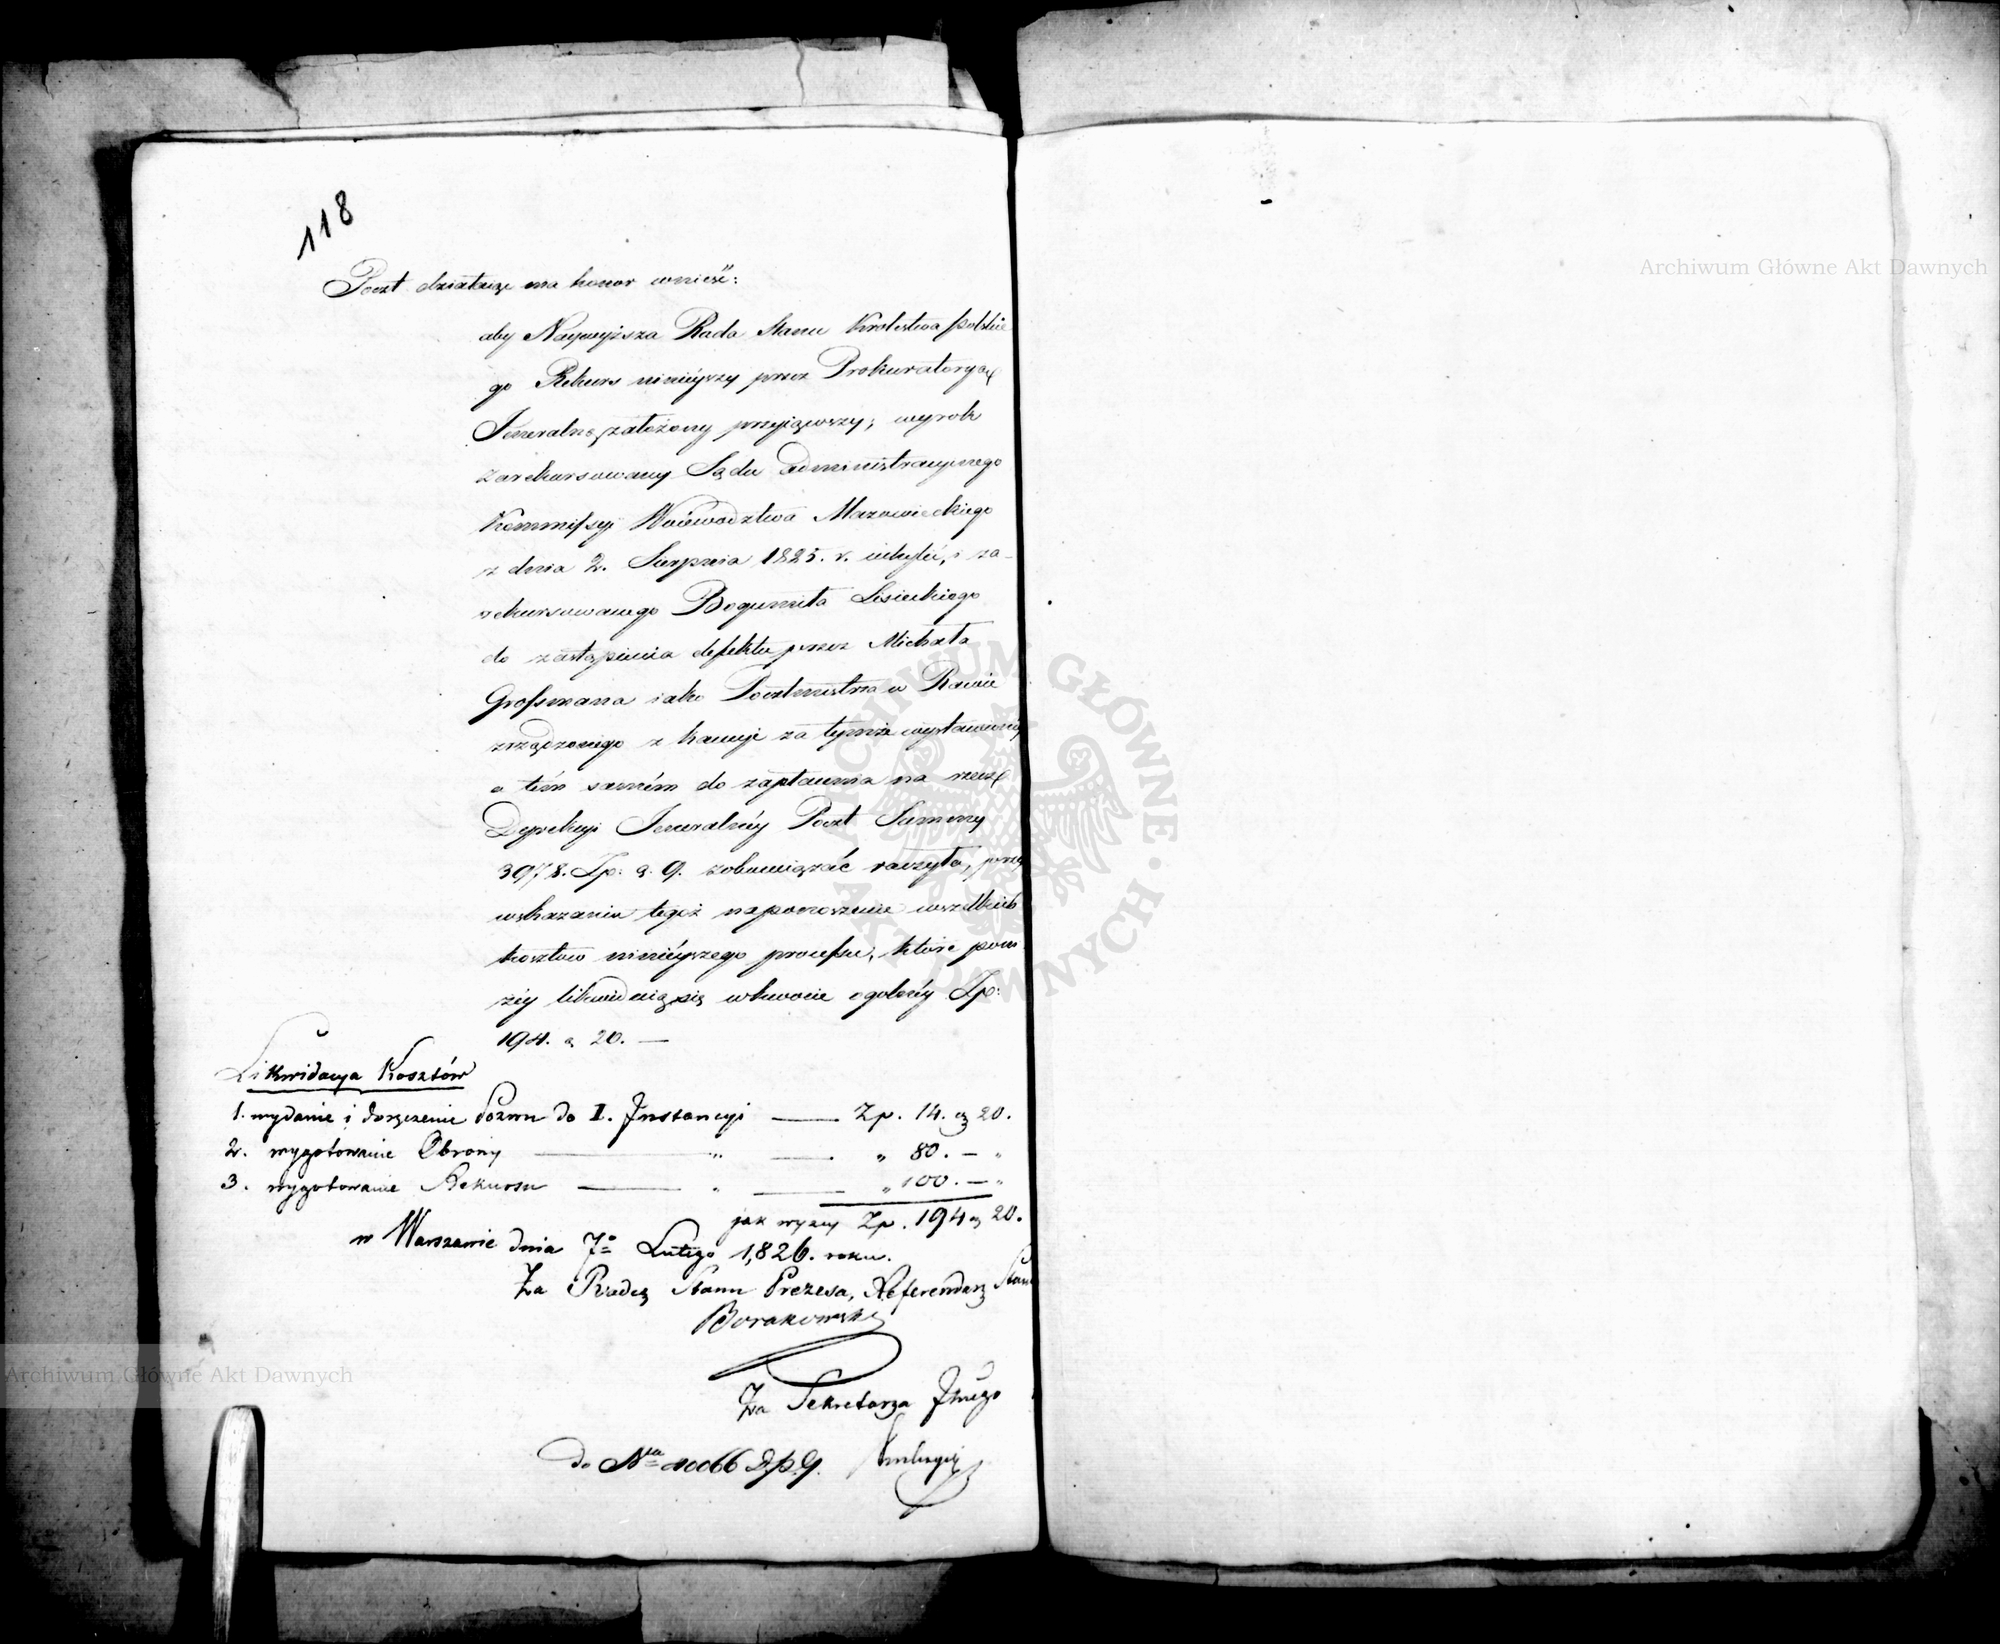 118
Poczt działaiąc ma honor wnieść:
aby Naywyższa Rada Stanu Krolestwa Polskie
go Rekurs ninieyszy przez Prokuratoryą
Jeneralną założony przyiąwszy, wyrok
zarekursowany Sądu administracyinego
Kommissyi Woiewodztwa Mazowieckiego
z dnia 2. Sierpnia 1825. r. uchylić, i za-
rekursowanego Bogumiła Lisieckiego
do zastąpienia defektu przez Michała
Grossmana iako Pocztmistrza w Rawie
zrządzonego z kaucyi za tymże wystawioney
a tém samém do zapłacenia na rzecz
Dyrekcyi Jeneralnéy Poczt Summy
3978. Zp: g. 9. zobowiązać raczyła, przy
wskazaniu tegoż na ponoszenie wszelkich
kosztow ninieyszego processu, które powy
żéy likwiduią się w kwocie ogolnéy Zp:
194. g 20. —
Likwidacya Kosztów
1. wydanie i doręczenie Pozwu do I. Instancyi — Zp. 14. g 20.
2. wygotowanie Obrony — " — " 80. — "
3. wygotowanie Rekursu — " — " 100. — "
jak wyzey Zp. 194 g 20.
w Warszawie dnia 7º Lutego 1,826. roku.
Za Radcę Stanu Prezesa, Referendarz Stanu
Borakowski
Za Sekretarza Jlnego
do Nru 20066 D.p.G.
Archiwum Główne Akt Dawnych
Archiwum Główne Akt Dawnych
ARCHIWUM GŁÓWNE · AKT DAWNYCH ·